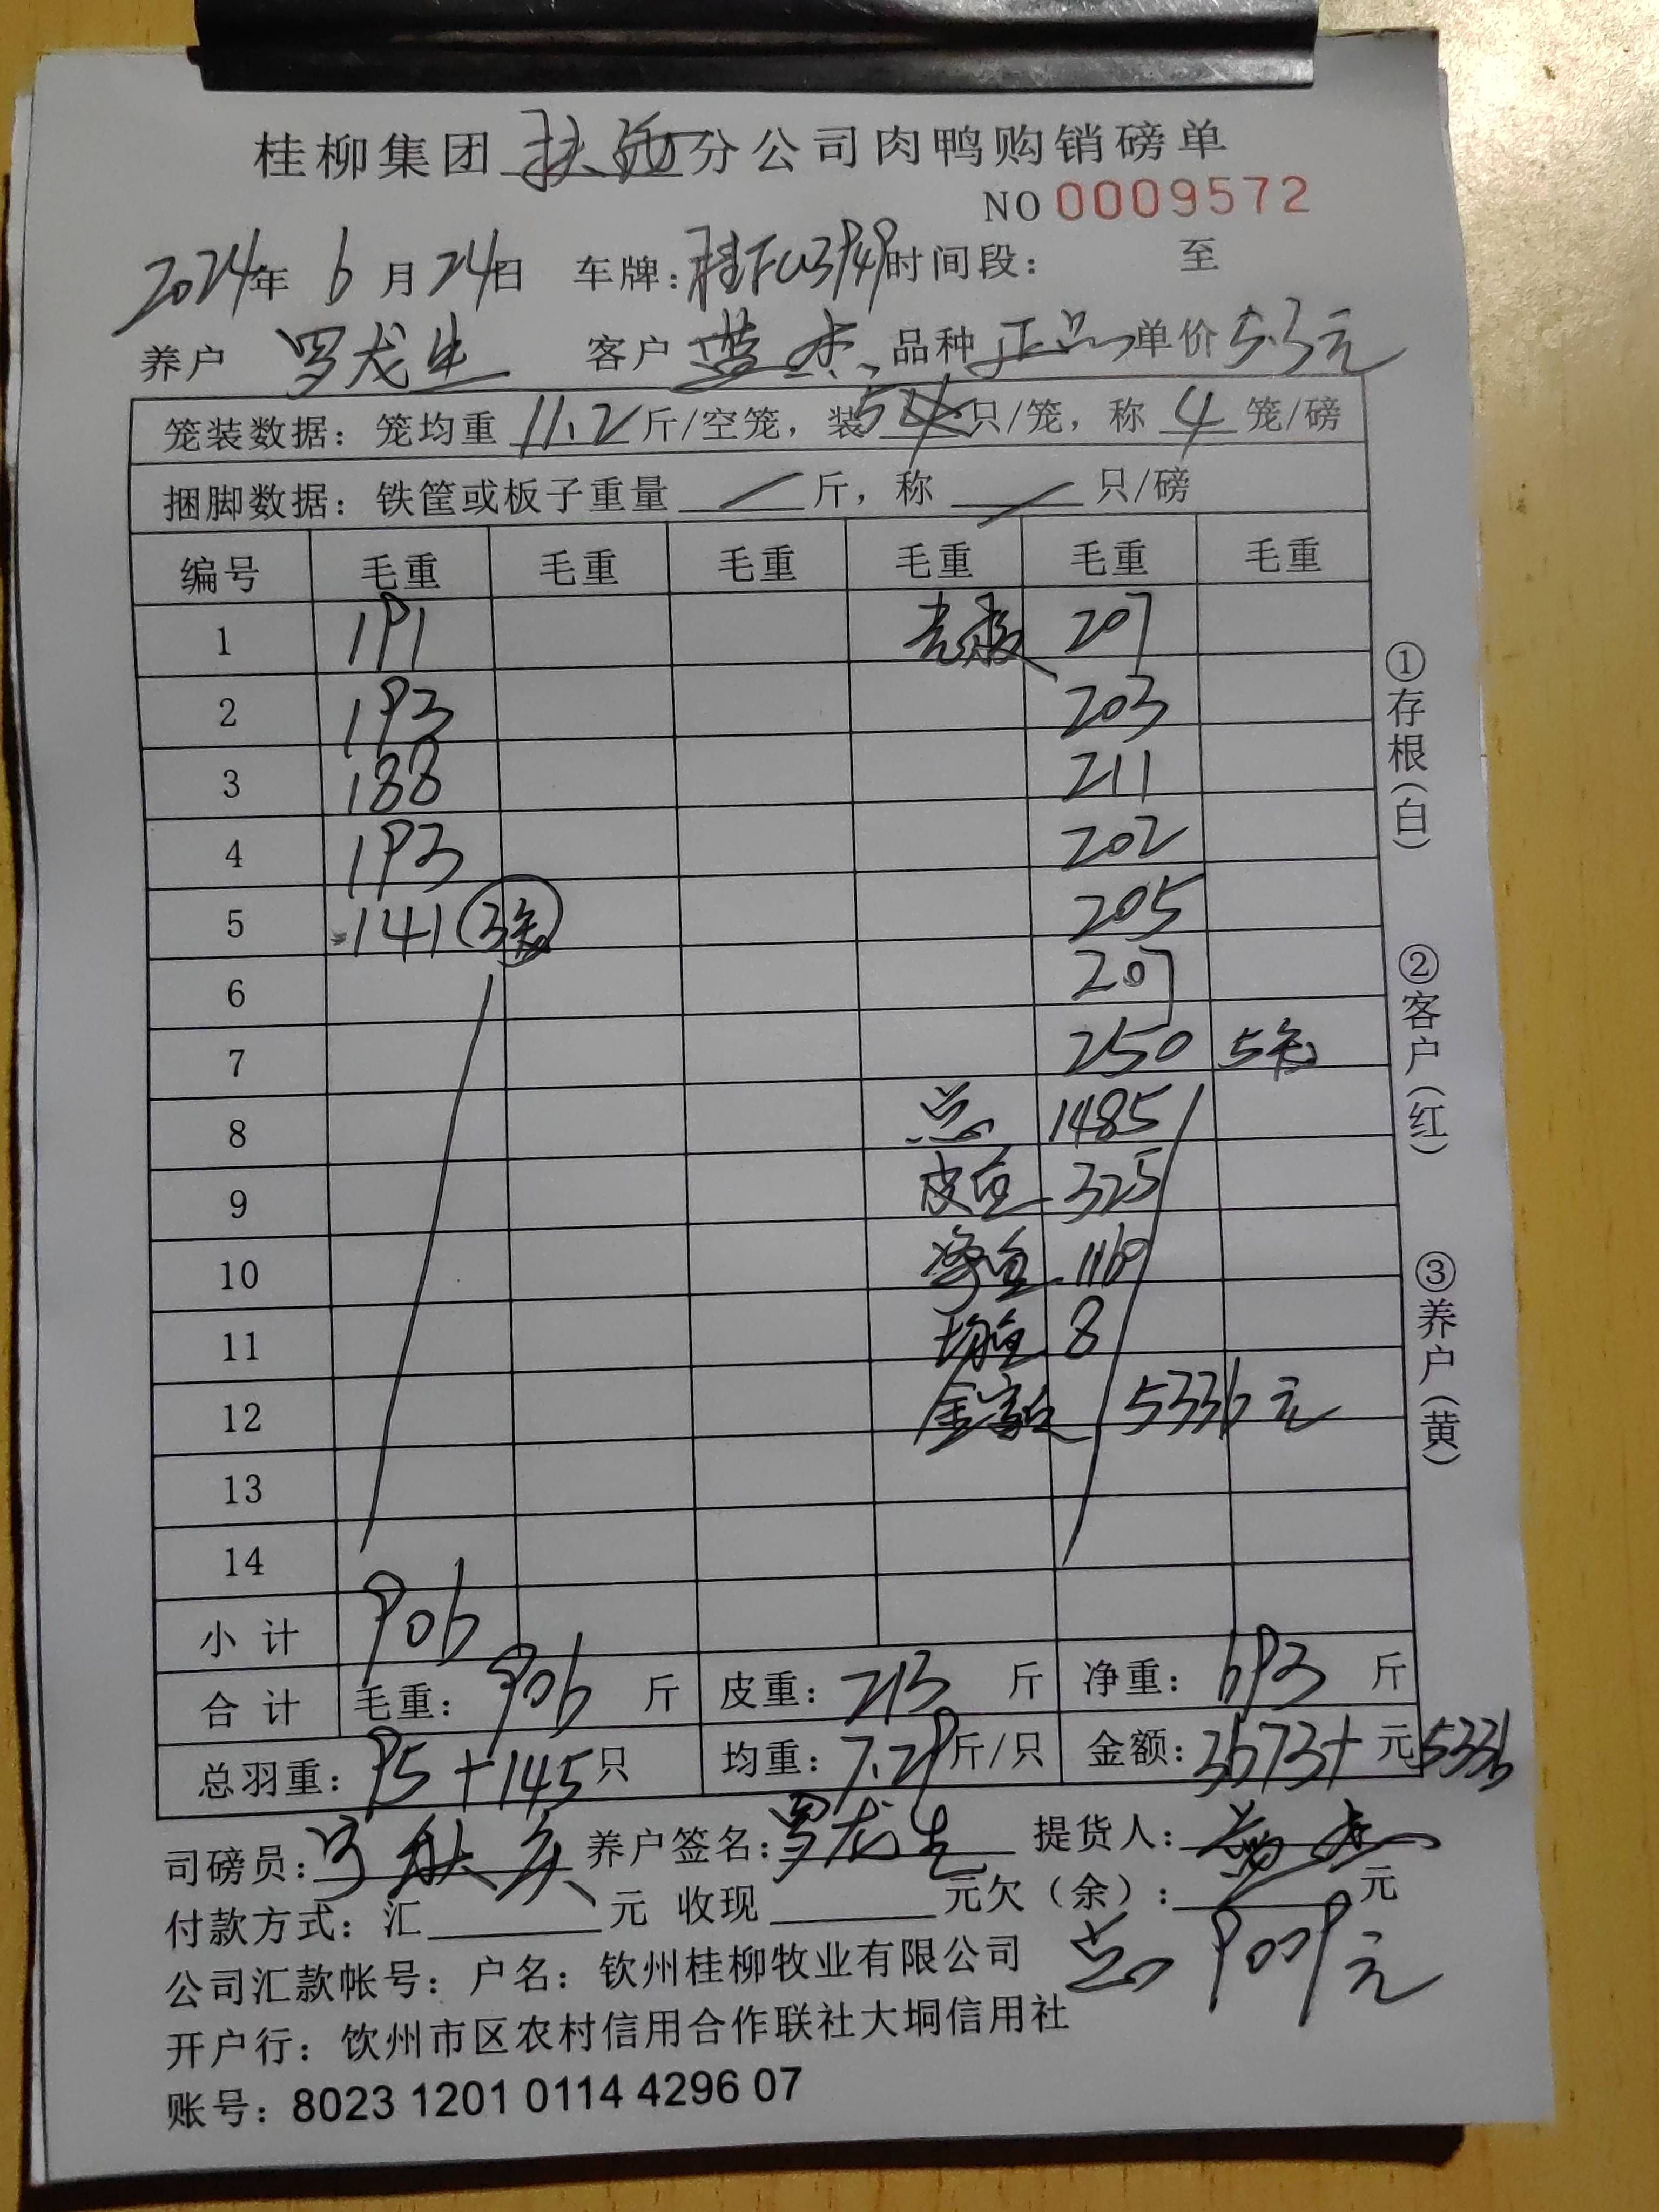 桂柳集团 扶西 分公司肉鸭购销磅单
NO 0009572
2024年 6 月 24日 车牌: 时间段: 至
养户 罗龙生 客户 蓝杰 品种 正品 单价 5.3元
笼装数据: 笼均重 11.2 斤/空笼, 装 5 只/笼, 称 4 笼/磅
捆脚数据: 铁筐或板子重量 / 斤, 称 / 只/磅
编号 毛重 毛重 毛重 毛重 毛重 毛重
1 191 207
2 193 203
3 188 211
4 193 202
5 141 (3笼) 205
6 207
7 250 5笼
8 总 1485
9 皮重 325
10 净重 1160
11 均重 8
12 金额 5336元
13
14
小计 906
合计 毛重: 906 斤 皮重: 213 斤 净重: 693 斤
总羽重: 95+145 只 均重: 7.29 斤/只 金额: 3673+ 元 5336
司磅员: 养户签名: 罗龙生 提货人: 蓝杰
付款方式: 汇 元 收现 元欠(余): 元
总 9009元
公司汇款帐号: 户名: 钦州桂柳牧业有限公司
开户行: 钦州市区农村信用合作联社大垌信用社
账号: 8023 1201 0114 4296 07
①存根(白)
②客户(红)
③养户(黄)